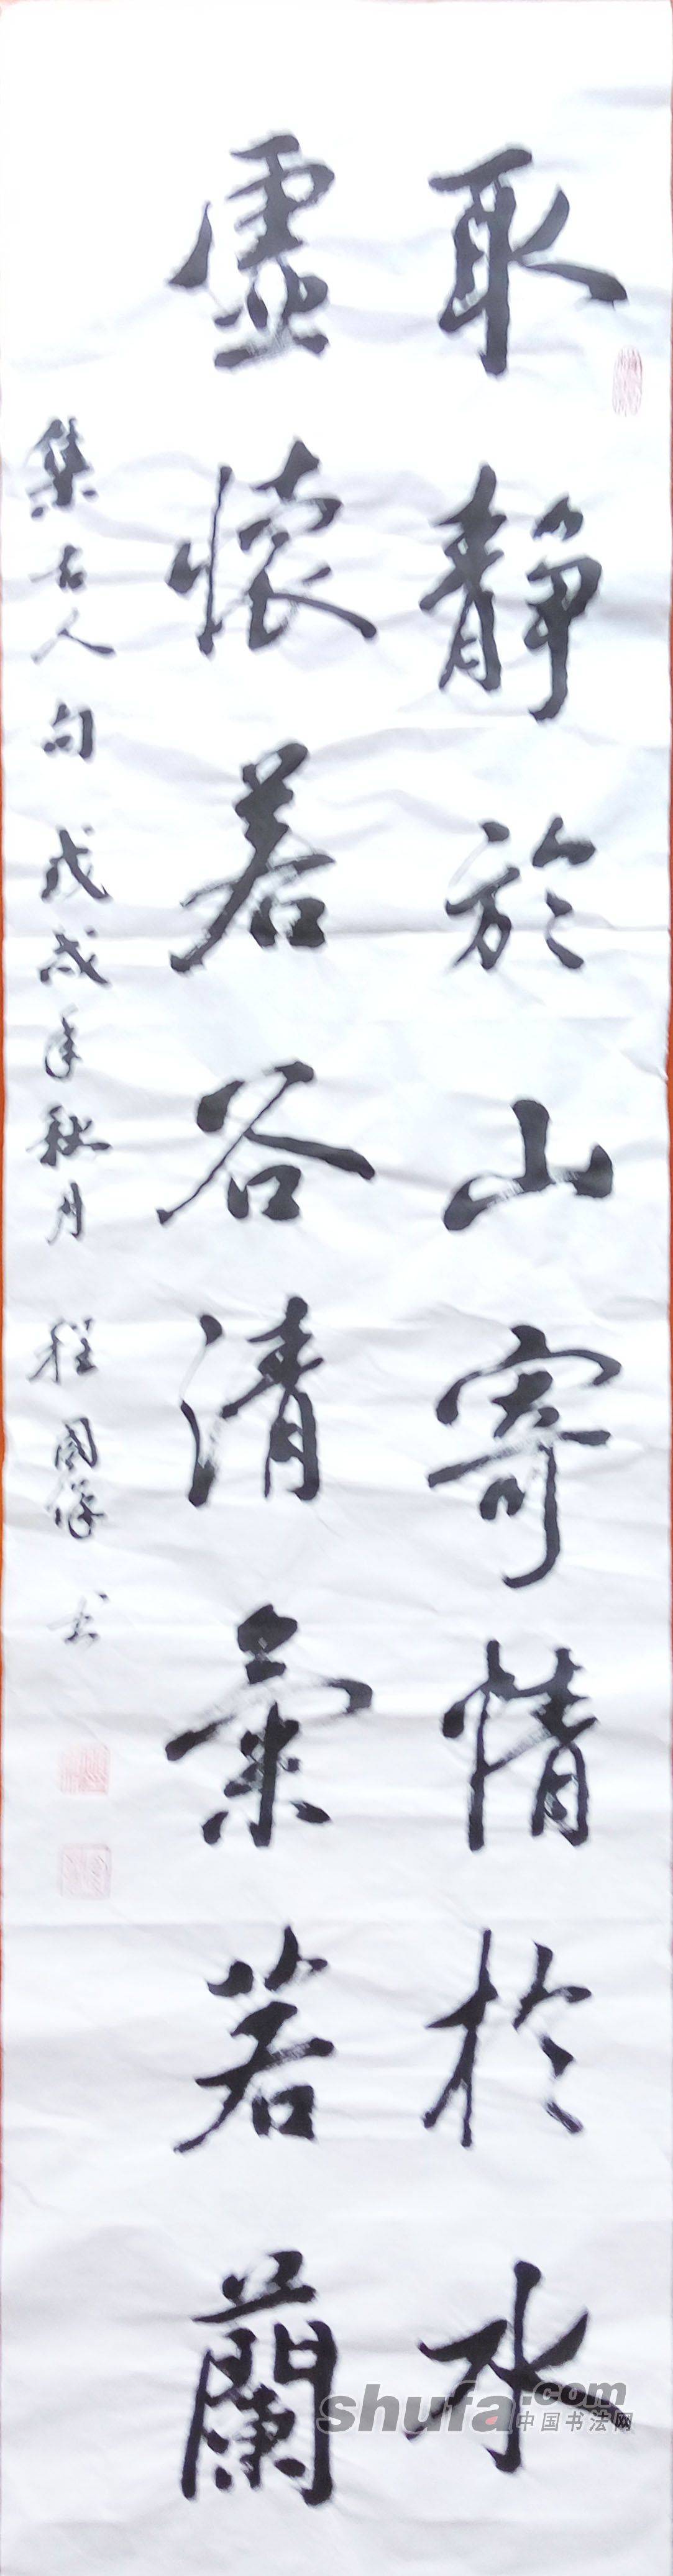 取静於山寄情於水
虚懷若谷清氣若蘭
集古人句 戊戌年秋月 程國 书
shufa.com
中国书法网